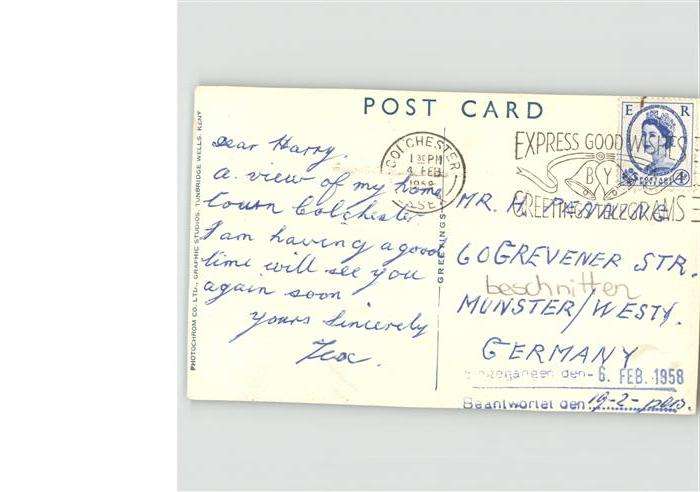 POST CARD
E R
POSTAGE
4D
EXPRESS GOOD WISHES
BY
GREETINGS TELEGRAMS
COLCHESTER
1 30 PM
4 FEB
1958
ESSEX
Dear Harry.
A view of my home
town Colchester
I am having a good
time will see you
again soon
Yours Sincerely
MR. H.
60 GREVENER STR.
beschnitten
MUNSTER/WESTF.
GERMANY
Eingegangen den - 6. FEB. 1958
Beantwortet den 19-2-
GREETINGS
PHOTOCHROM CO. LTD., GRAPHIC STUDIOS, TUNBRIDGE WELLS, KENT